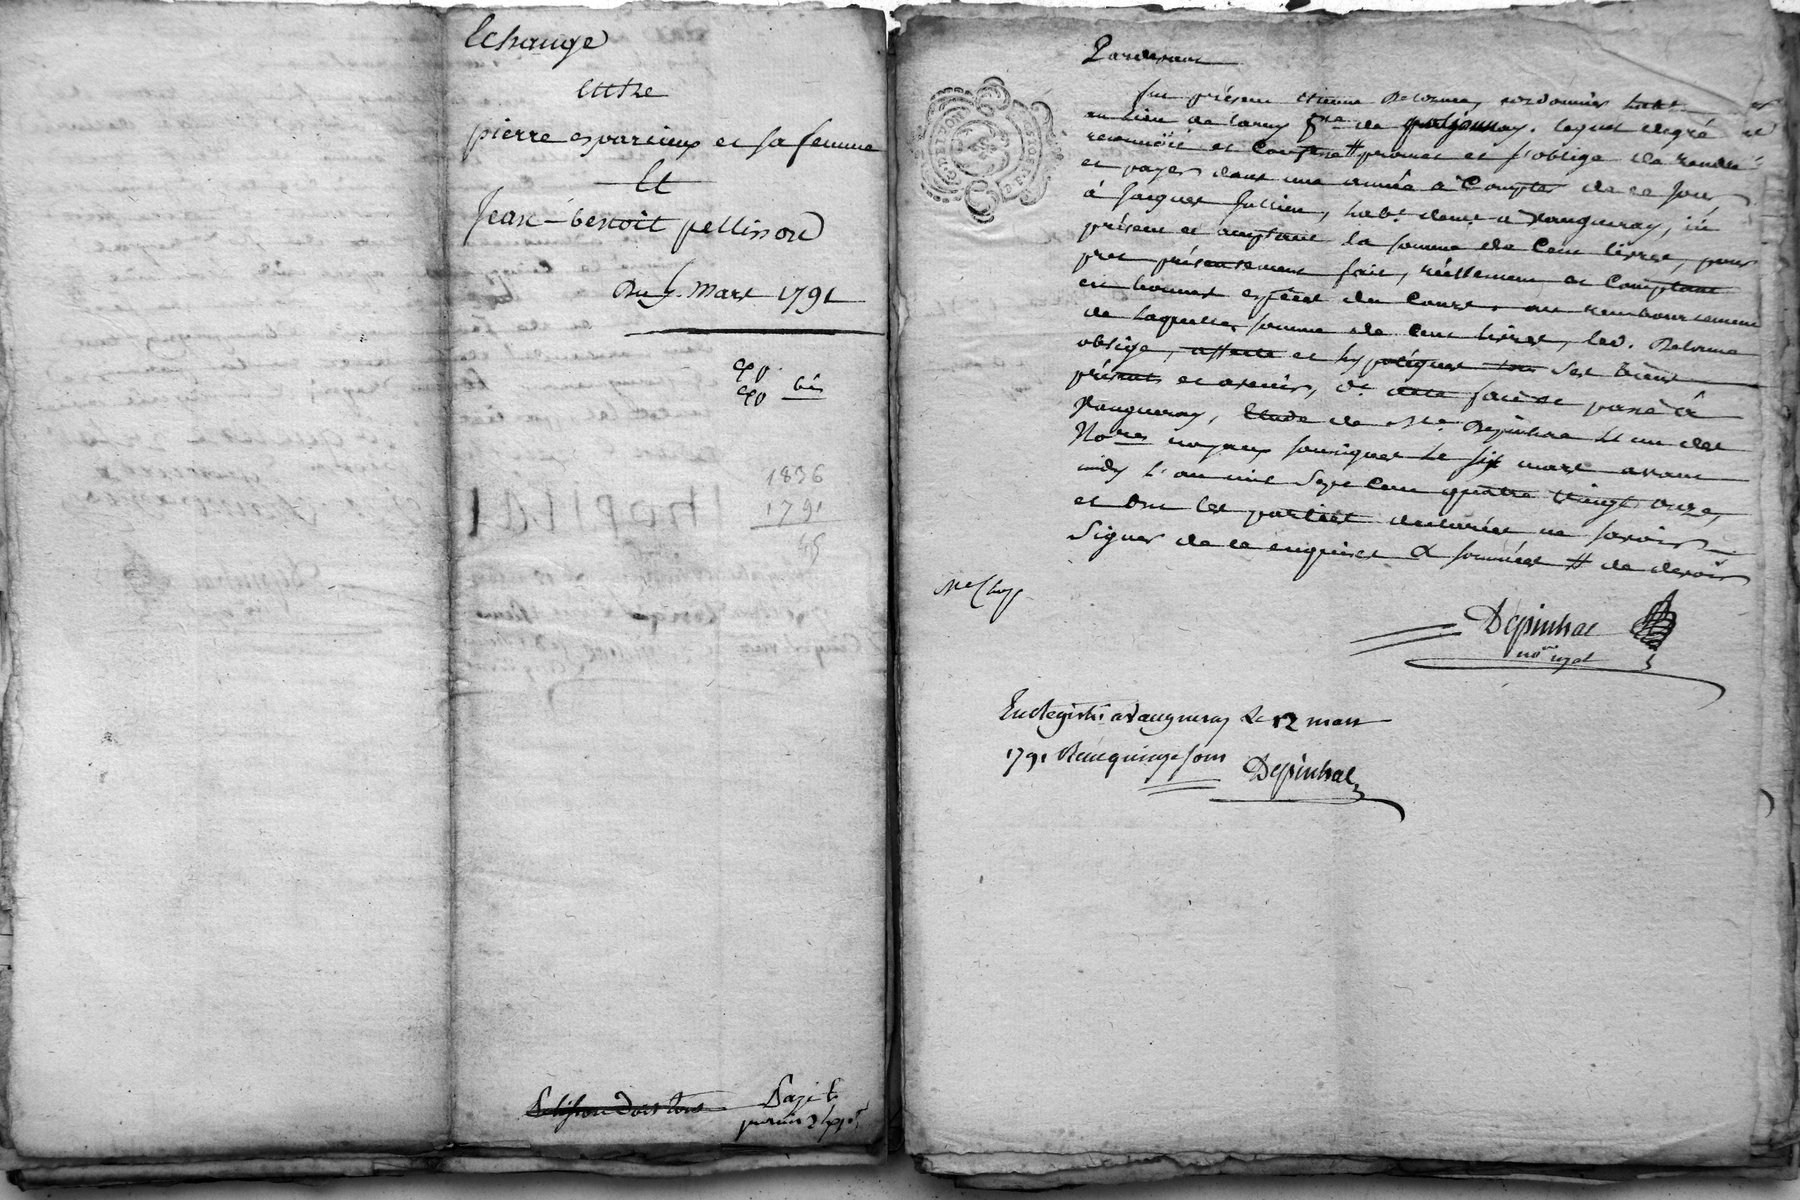 Echange
entre
pierre esparcieux et sa femme
Et
Jean-benoit pellisson
Du 7. Mars 1791
exp.
exp bis
1836
1791
45
pellisson doit tout
Payé le
Pardevant
fut présent etienne Delorme, cordonnier habt
au lieu de larny psse de pollionnay. lequel de gré a
reconnu et Confessé # promet et s'oblige de rendre
et payer dans une année a Compter de ce Jour
à Jacques Jullien, habt demt a Vaugneray, ici
présent et acceptant la somme de Cent livres, pour
pret présentement fait, réellement et Comptant
en bonnes espèces du Cours. au remboursement
de laquelle somme de Cent livres, led. Delorme
oblige, affecte et hypotèque tous ses biens
présents et avenir, &c. acte fait et passé à
Vaugneray, Etude de Me. Depinhac L'un des
Nores royaux soussignés Le six mars avant
midy L'an mil Sept Cent quatre Vingt Onze,
et ont les parties declarées ne savoir
Signer de ce enquises & sommées # de devoir
Depinhac
nore royal
Enregistré a Vaugneray Le 12 mars
1791 Reçu quinze sous Depinhac